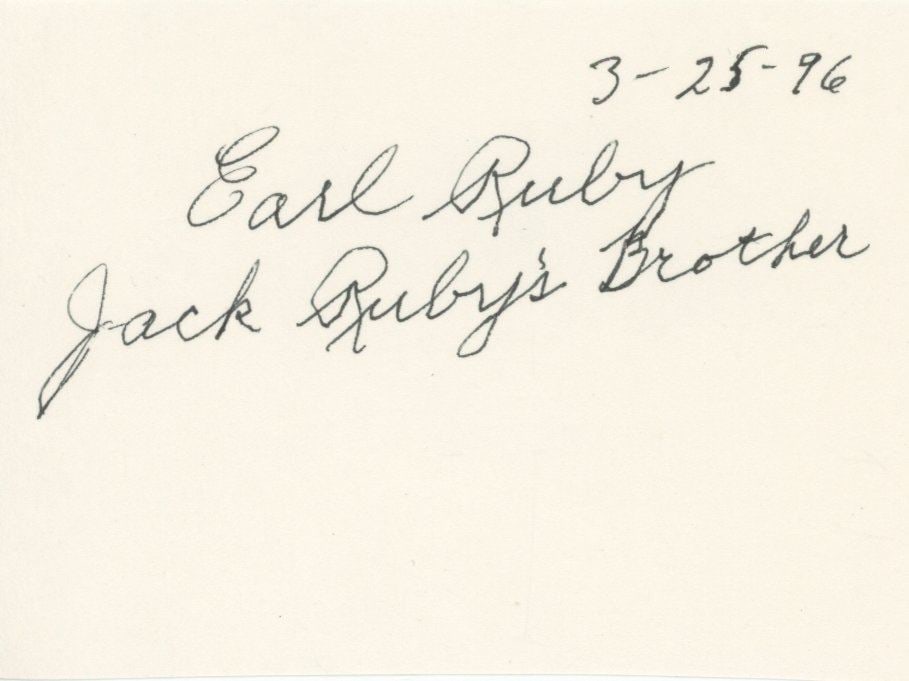 3-25-96
Earl Ruby
Jack Ruby's Brother